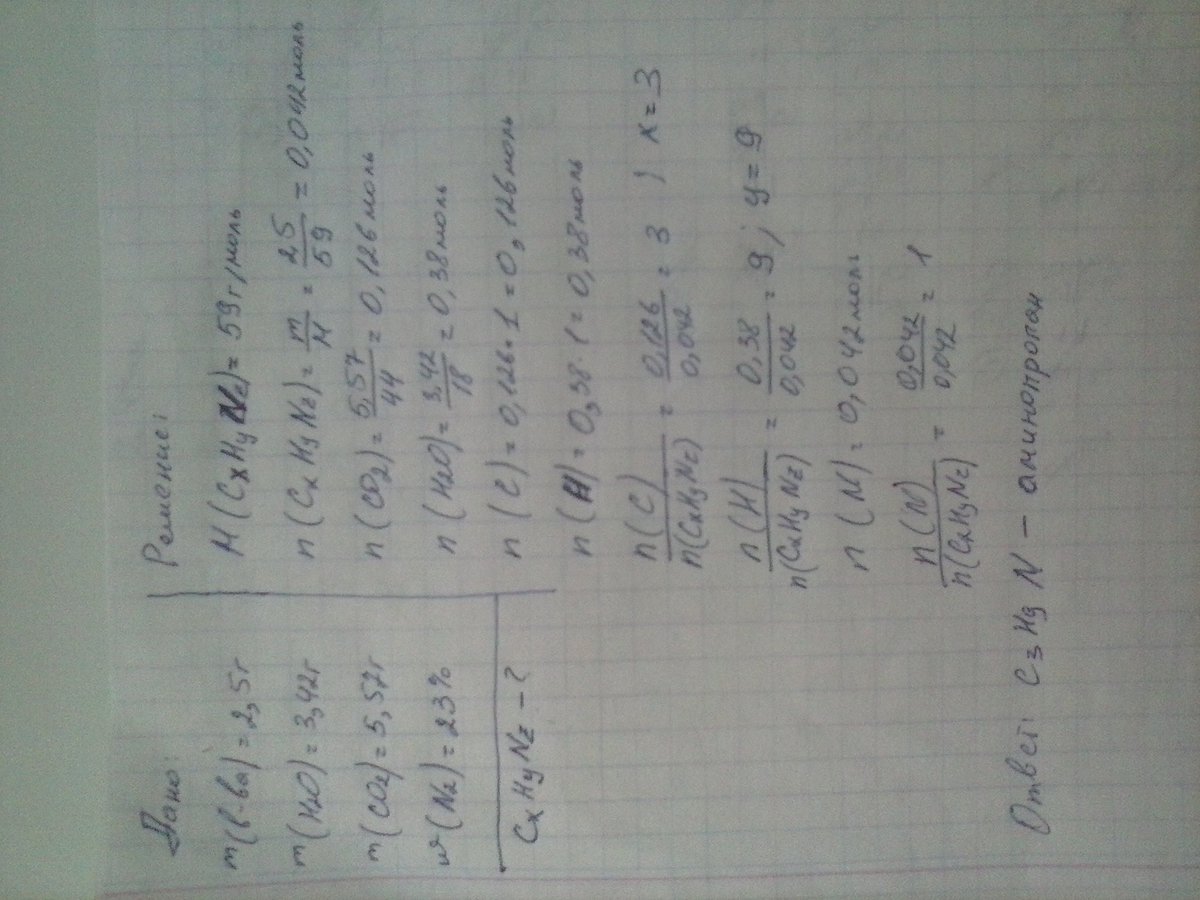 Дано:
m(в-ва) = 2,5г
m(H₂O) = 3,42г
m(CO₂) = 5,57г
w(N₂) = 23%
CxHyNz - ?
Решение:
M(CxHyNz) = 59г/моль
n(CxHyNz) = m/M = 2,5/59 = 0,042моль
n(CO₂) = 5,57/44 = 0,126моль
n(H₂O) = 3,42/18 = 0,38моль
n(C) = 0,126·1 = 0,126моль
n(H) = 0,38·1 = 0,38моль
n(C)/n(CxHyNz) = 0,126/0,042 = 3; x = 3
n(H)/n(CxHyNz) = 0,38/0,042 = 9; y = 9
n(N) = 0,042моль
n(N)/n(CxHyNz) = 0,042/0,042 = 1
Ответ: C₃H₉N - аминопропан